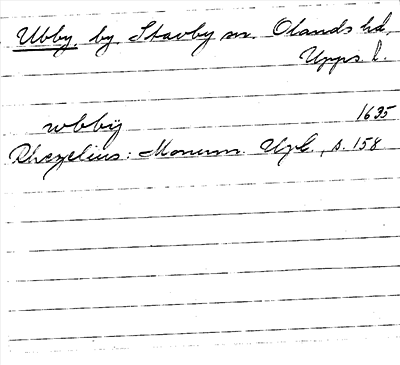 Ubby, by, Stavby sn. Olands hd,
Upps l.
wbbÿ 1635
Rhezelius: Monum. Upl., s. 158